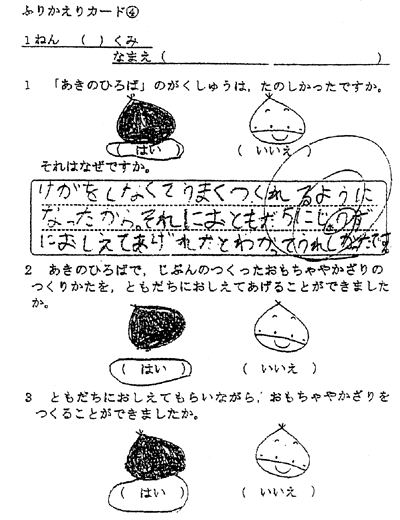 ふりかえりカード④
1ねん （ ）くみ
なまえ（ ）
1 「あきのひろば」のがくしゅうは，たのしかったですか。
（ はい ） （ いいえ ）
それはなぜですか。
けがをしなくてうまくつくれるように
なったから。それにおともだちにじょうず
におしえてあげれたとわかってうれしかったです
2 あきのひろばで，じぶんのつくったおもちゃやかざりの
つくりかたを，ともだちにおしえてあげることができました
か。
（ はい ） （ いいえ ）
3 ともだちにおしえてもらいながら，おもちゃやかざりを
つくることができましたか。
（ はい ） （ いいえ ）